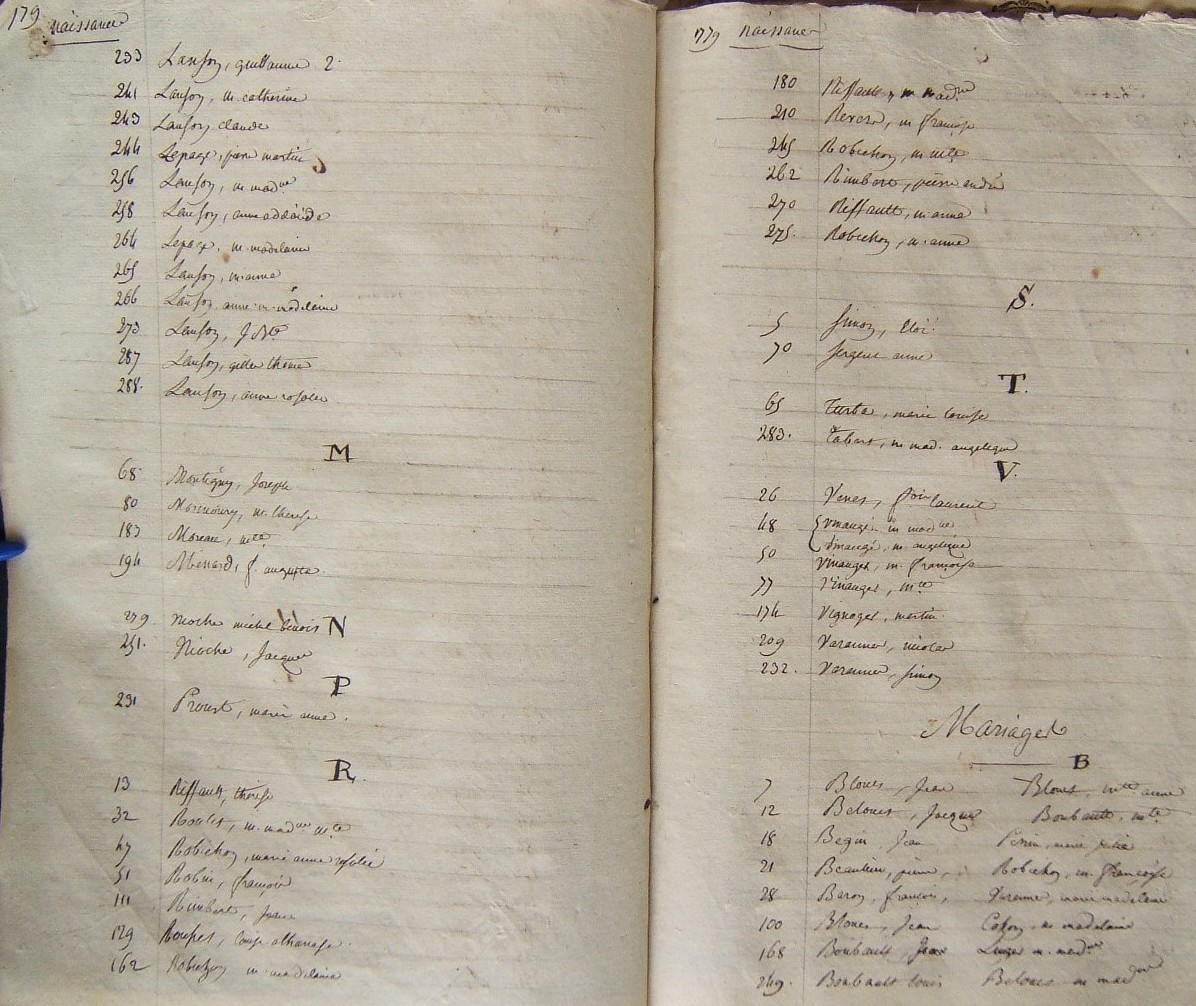 179 naissances
233 Lanson, guillaume 2.
241 Lanson, m. catherine
243 Lanson claude
244 Lepage, martin
256 Lanson, m. mad.ne
258 Lanson, anne adelaïde
264 Lepage, m. madelaine
265 Lanson, m. anne
266 Lanson anne m. madelaine
273 Lanson, J. Bte
287 Lanson,
288. Lanson, anne rosalie
M
68 Montigny, Joseph
80 m. therese
183 Moreau, m.te
194 Menard, f. auguste.
N
279 nioche michel
251. Nioche, Jacques
P
291 Proust, marie anne.
R
13 Riffault, thérèse
32 m. mad.ne m.te
47 Robichon, marie anne rosalie
51 Robin, françois
111 Rimbert, Jean
129 Roupet, louise athanase.
162 Robichon m. madelaine
779 naissances
180 Riffault, m mad.ne
210 m. françoise
245 Robichon, m.
262 Rimbert, pierre andré
270 Riffault, m. anne
275. Robichon, m. anne
S.
5 Simon, Eloi.
70 Sergent anne
T.
65 marie louise
283. Tabart, m. mad. angelique
V.
26 laurent
48 Vinauger m mad.ne
Vinauger, m. angelique
50 Vinauger, m. françoise
77 Vinauger, m.te
174 martin.
209 Varenne, nicolas
232. Varenne, Simon
Mariages
B
7 Jean anne
12 Jacques Boubault, m.te
18 Begin Jean Perin, marie julie
21 Beaulieu, pierre, Robichon, m. françoise
28 Baron, françois, Varenne, marie madelaine
100 Jean m. madelaine
168 Boubault m. mad.ne
249. Boubault louis m mad.ne